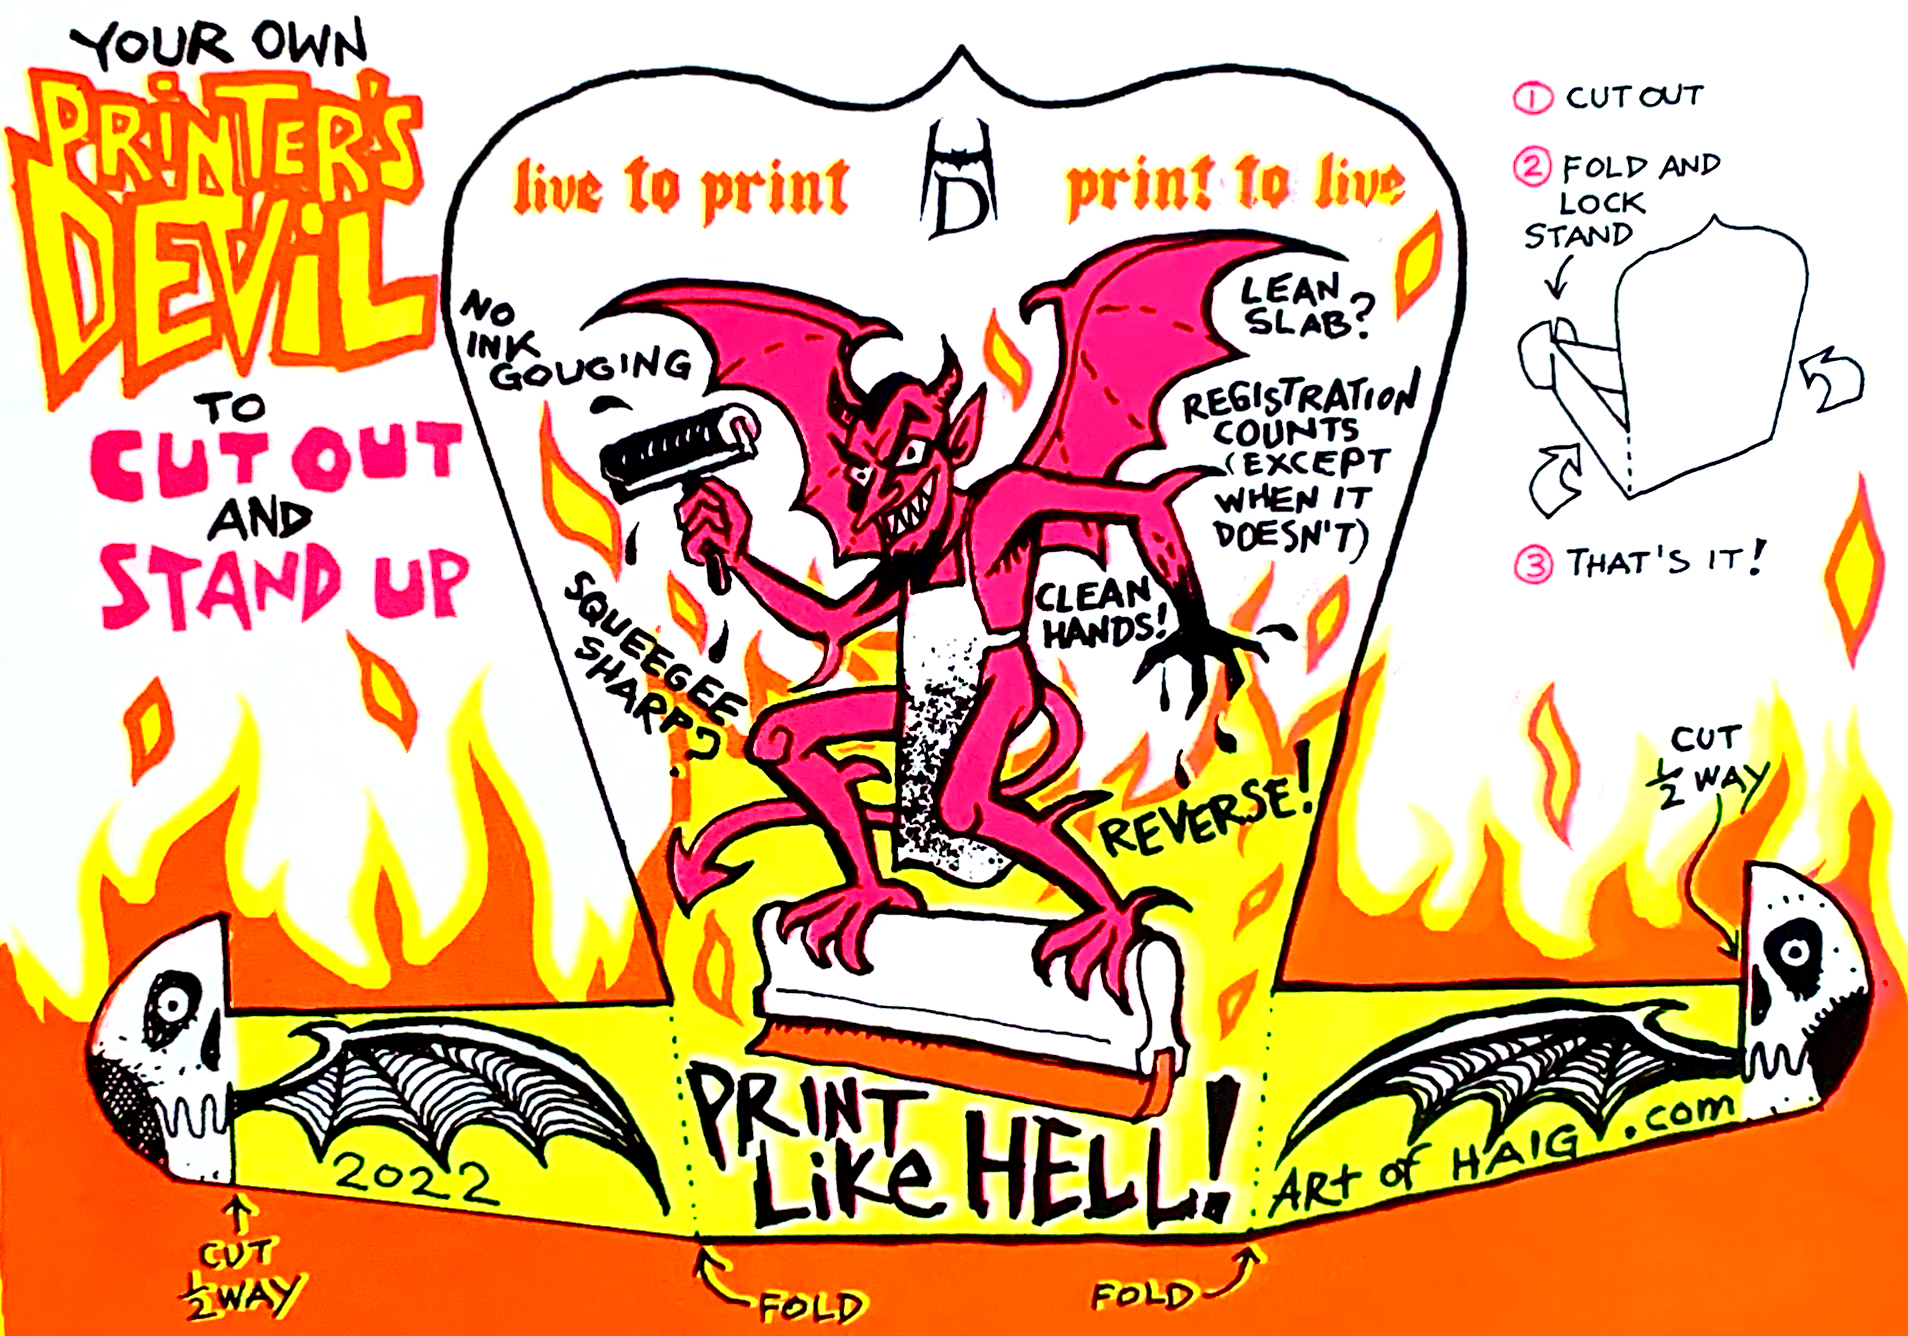 YOUR OWN
PRINTER'S
DEVIL
TO
CUT OUT
AND
STAND UP
live to print
HD
print to live
NO
INK
GOUGING
LEAN
SLAB?
REGISTRATION
COUNTS
(EXCEPT
WHEN IT
DOESN'T)
CLEAN
HANDS!
SQUEEGEE
SHARP?
REVERSE!
PRINT
LiKe HELL!
2022
ART of HAIG.com
1 CUT OUT
2 FOLD AND
LOCK
STAND
3 THAT'S IT!
CUT
½ WAY
CUT
½ WAY
FOLD
FOLD